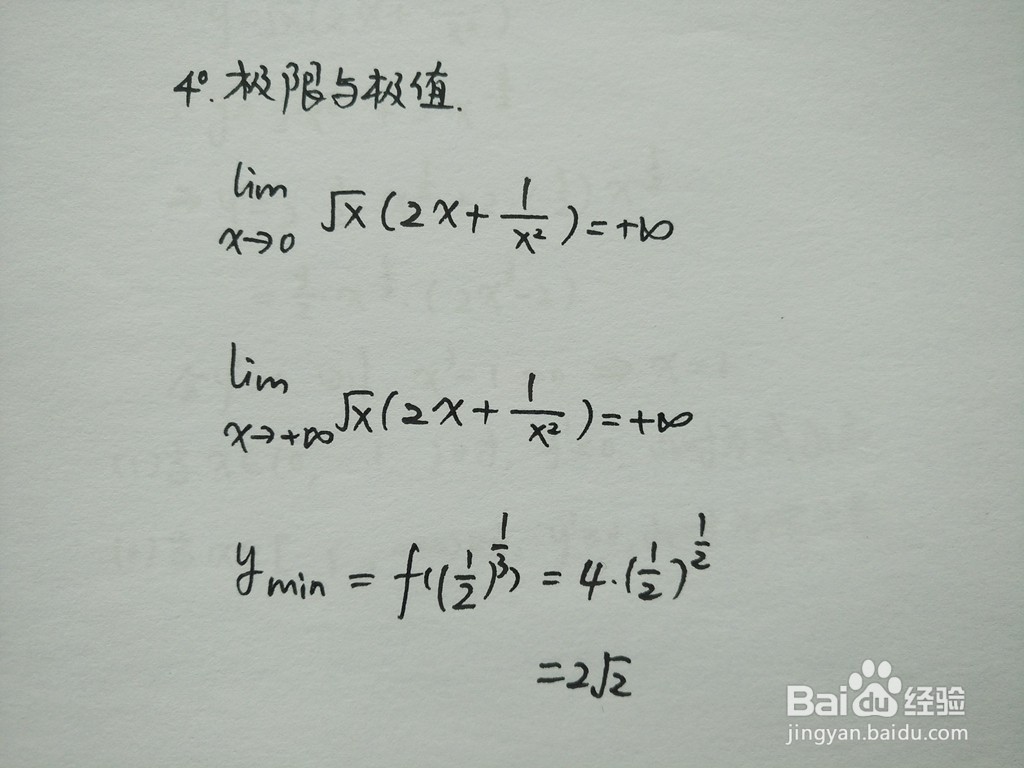 4°. 极限与极值.
lim x→0 √x(2x+1/x²)=+∞
lim x→+∞ √x(2x+1/x²)=+∞
y min = f((1/2)^1/3) = 4·(1/2)^1/2
=2√2
Bai du 经验
jingyan.baidu.com